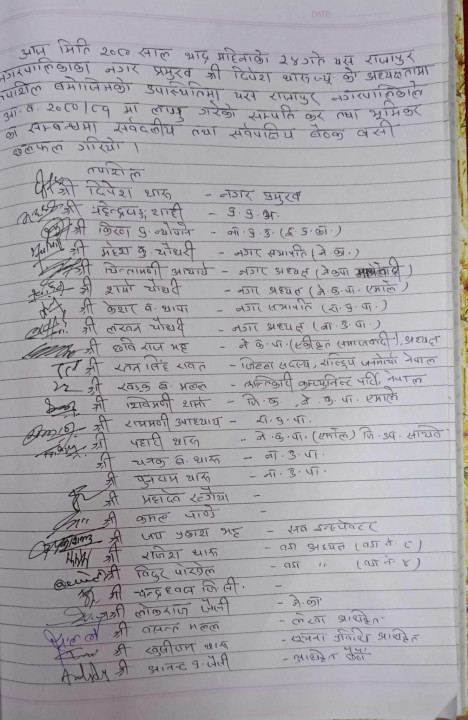 आज मिति २०८० साल भाद्र महिनाका २४ गते यस राजापुर
नगरपालिकाका नगर प्रमुख श्री दिपेश थारूज्यू को अध्यक्षतामा
तपाशिल बमोजिमको उपास्थितिमा यस राजापुर नगरपालिकाले
आ.व. २०८०/८१ मा लागु गरेको सम्पति कर तथा भूमिकर
का सम्बन्धमा सर्वदलीय तथा सर्वपक्षिय बैठक बसी
छलफल गरियो ।
तपाशिल
श्री दिपेश थारू - नगर प्रमुख
श्री शाही - प्र.प्र.अ.
श्री किरण कु. न्यौपाने - ना.उ.पा.
श्री महेश कु. चौधरी - नगर सभापति (ने.का.)
श्री चिन्तामणी आचार्य - नगर अध्यक्ष (नेकपा माओवादी)
श्री चौधरी - नगर अध्यक्ष (ने.क.पा. एमाले)
श्री केशर ब. थापा - नगर सभापति (रा.प्र.पा.)
श्री लखन चौधरी - नगर अध्यक्ष (ना.उ.पा.)
श्री छवि राज भट्ट - ने.क.पा. (एकीकृत समाजवादी), अध्यक्ष
श्री रतन सिंह रावत - जिल्ला सदस्य, राष्ट्रिय जनमोर्चा नेपाल
श्री खडक ब. मल्ल - क्रान्तिकारी कम्युनिष्ट पार्टी, नेपाल
श्री शिवमणी शर्मा - जि.क., ने.क.पा. एमाले
श्री राममणी आचार्य - रा.प्र.पा.
श्री पहारी थारू - ने.क.पा. (एमाले) जि.उप. सचिव
श्री चन्द्र ब. थारू - ना.उ.पा.
श्री थारू - ना.उ.पा.
श्री महादेव -
श्री कमल पाण्डे -
श्री जय प्रकाश भट्ट - सव इन्स्पेक्टर
श्री राजेश थारू - वडा अध्यक्ष (वडा नं. ८)
श्री विदुर पोख्रेल - वडा " (वडा नं. ४)
श्री चन्द्र जि.सी. -
श्री लोकराज जैसी - ने.का.
श्री वसन्त मल्ल - लेखा अधिकृत
श्री थारू - सूचना प्रविधि अधिकृत
श्री आनन्द ब. जैसी - अधिकृत छैठौं